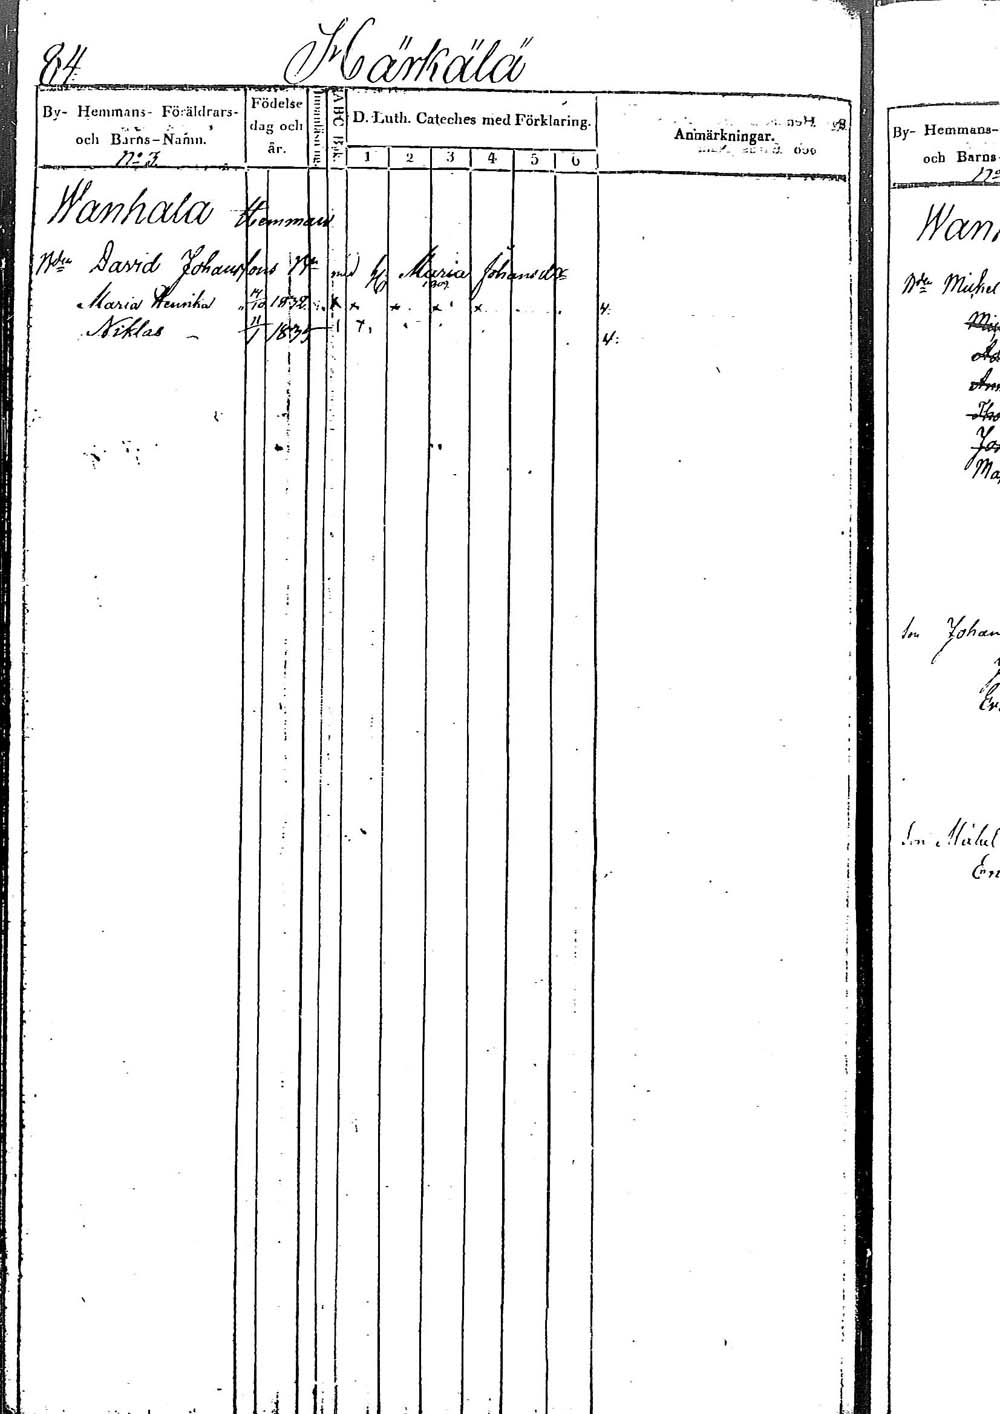 84. Härkälä
By- Hemmans- Föräldrars- och Barns-Namn.
No 3.
Födelse dag och år.
Innanläsning
ABC Bok
D. Luth. Cateches med Förklaring.
1 2 3 4 5 6
Anmärkningar.
Wanhala Hemman
Bden David Johanssons Bn med H. Maria Johansdr
Maria Henrika 1838 x x x x x 4.
Niklas 11/1 1835 4.
By- Hemmans-
och Barns-
No
Wanh
Bden Michel
Ma
Son Johan
Er
Son Michel
Er